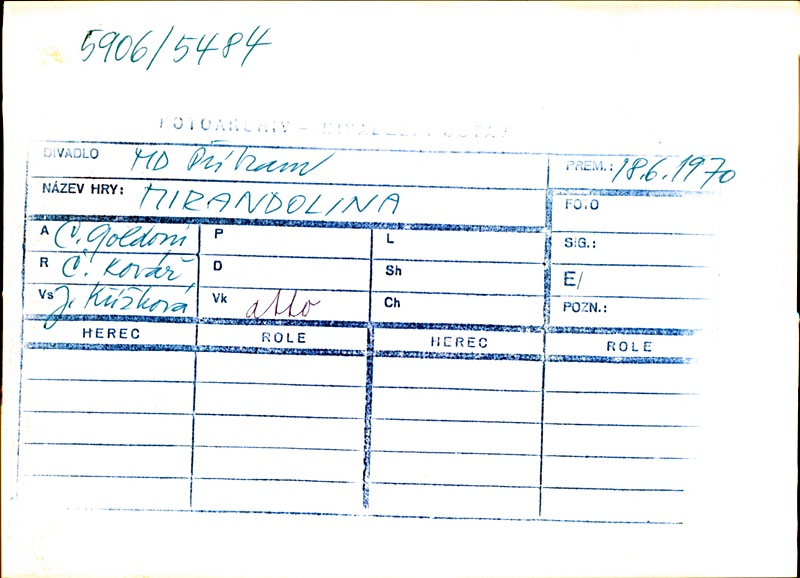 5906/5484
FOTOARCHIV – DIVADELNÍ ÚSTAV
DIVADLO MD Příbram PREM.: 18.6.1970
NÁZEV HRY: MIRANDOLINA FOTO
A C. Goldoni P L SIG.:
R Č. Kovář D Sh E/
Vs J. Křížková Vk atto Ch POZN.:
HEREC ROLE HEREC ROLE